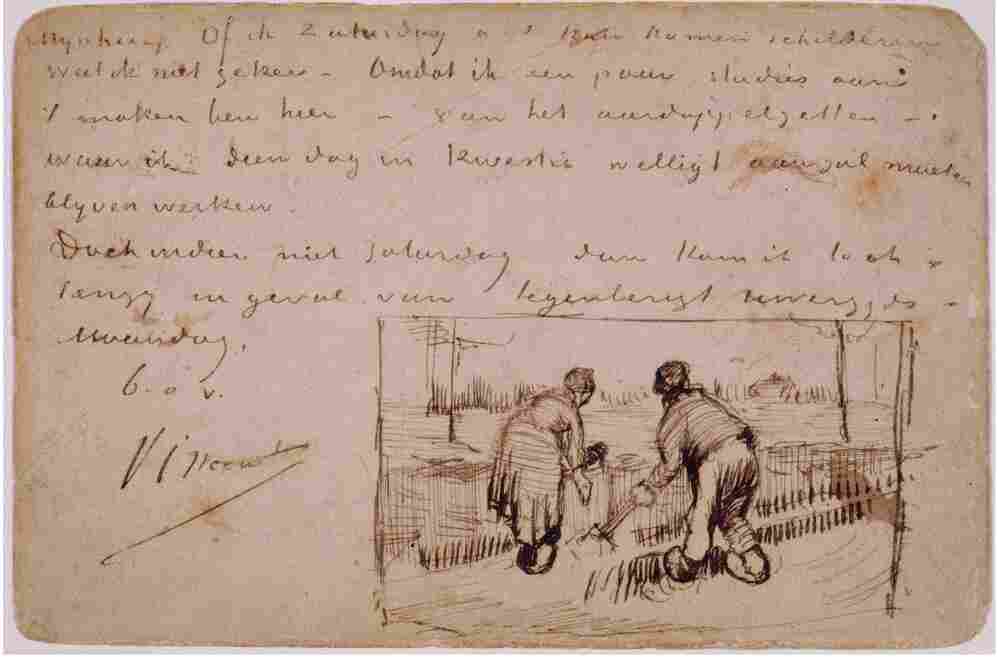 Mynheer, Of ik Zaturdag a s kan komen schilderen
weet ik niet zeker – Omdat ik een paar studies aan
't maken ben hier – van het aardappelzetten –
waar ik dien dag in kwestie welligt aan zal moeten
blyven werken.
Doch indien niet Saturdag dan kom ik toch
tenzy in geval van tegenberigt Uwerzyds –
Maandag.
b. a v.
Vincent